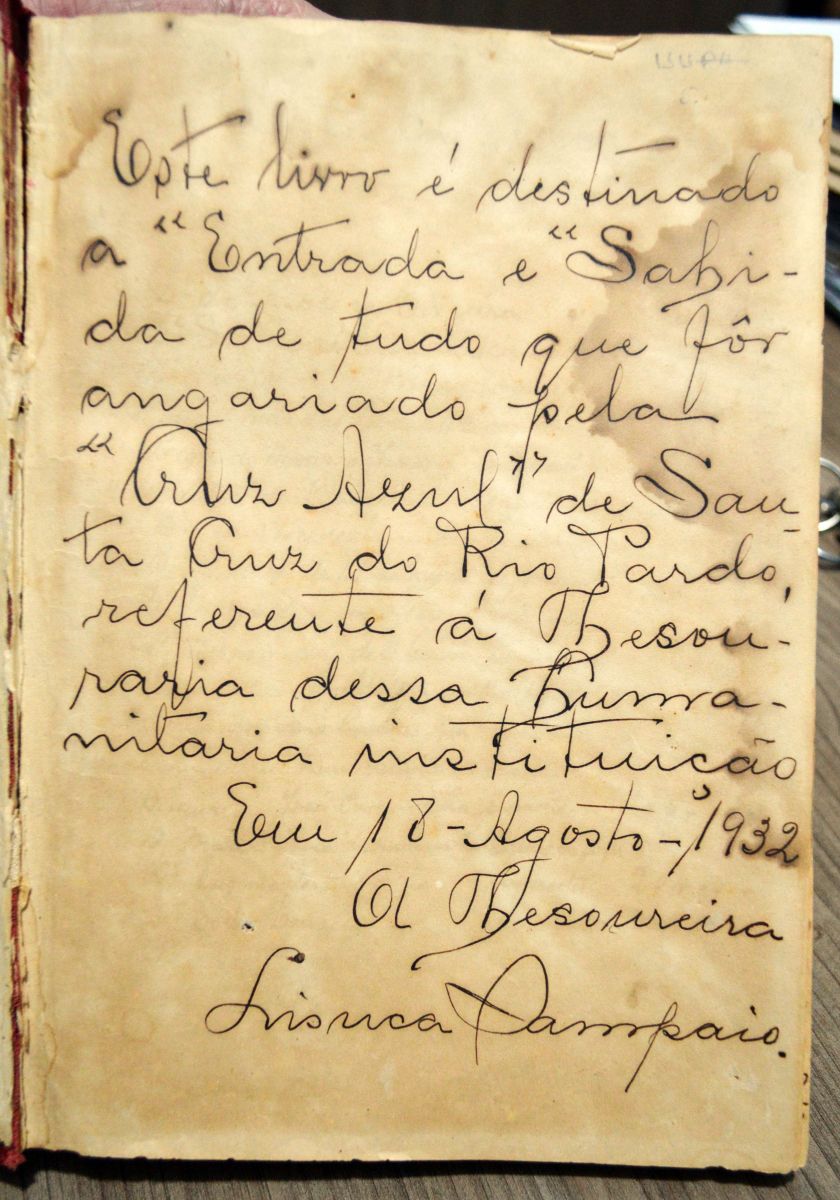 Este livro é destinado
a "Entrada e "Sahi-
da de tudo que fôr
angariado pela
"Cruz Azul" de San-
ta Cruz do Rio Pardo,
referente á Thesou-
raria dessa huma-
nitaria instituição
Em 18-Agosto-1932
A Thesoureira
Sampaio.